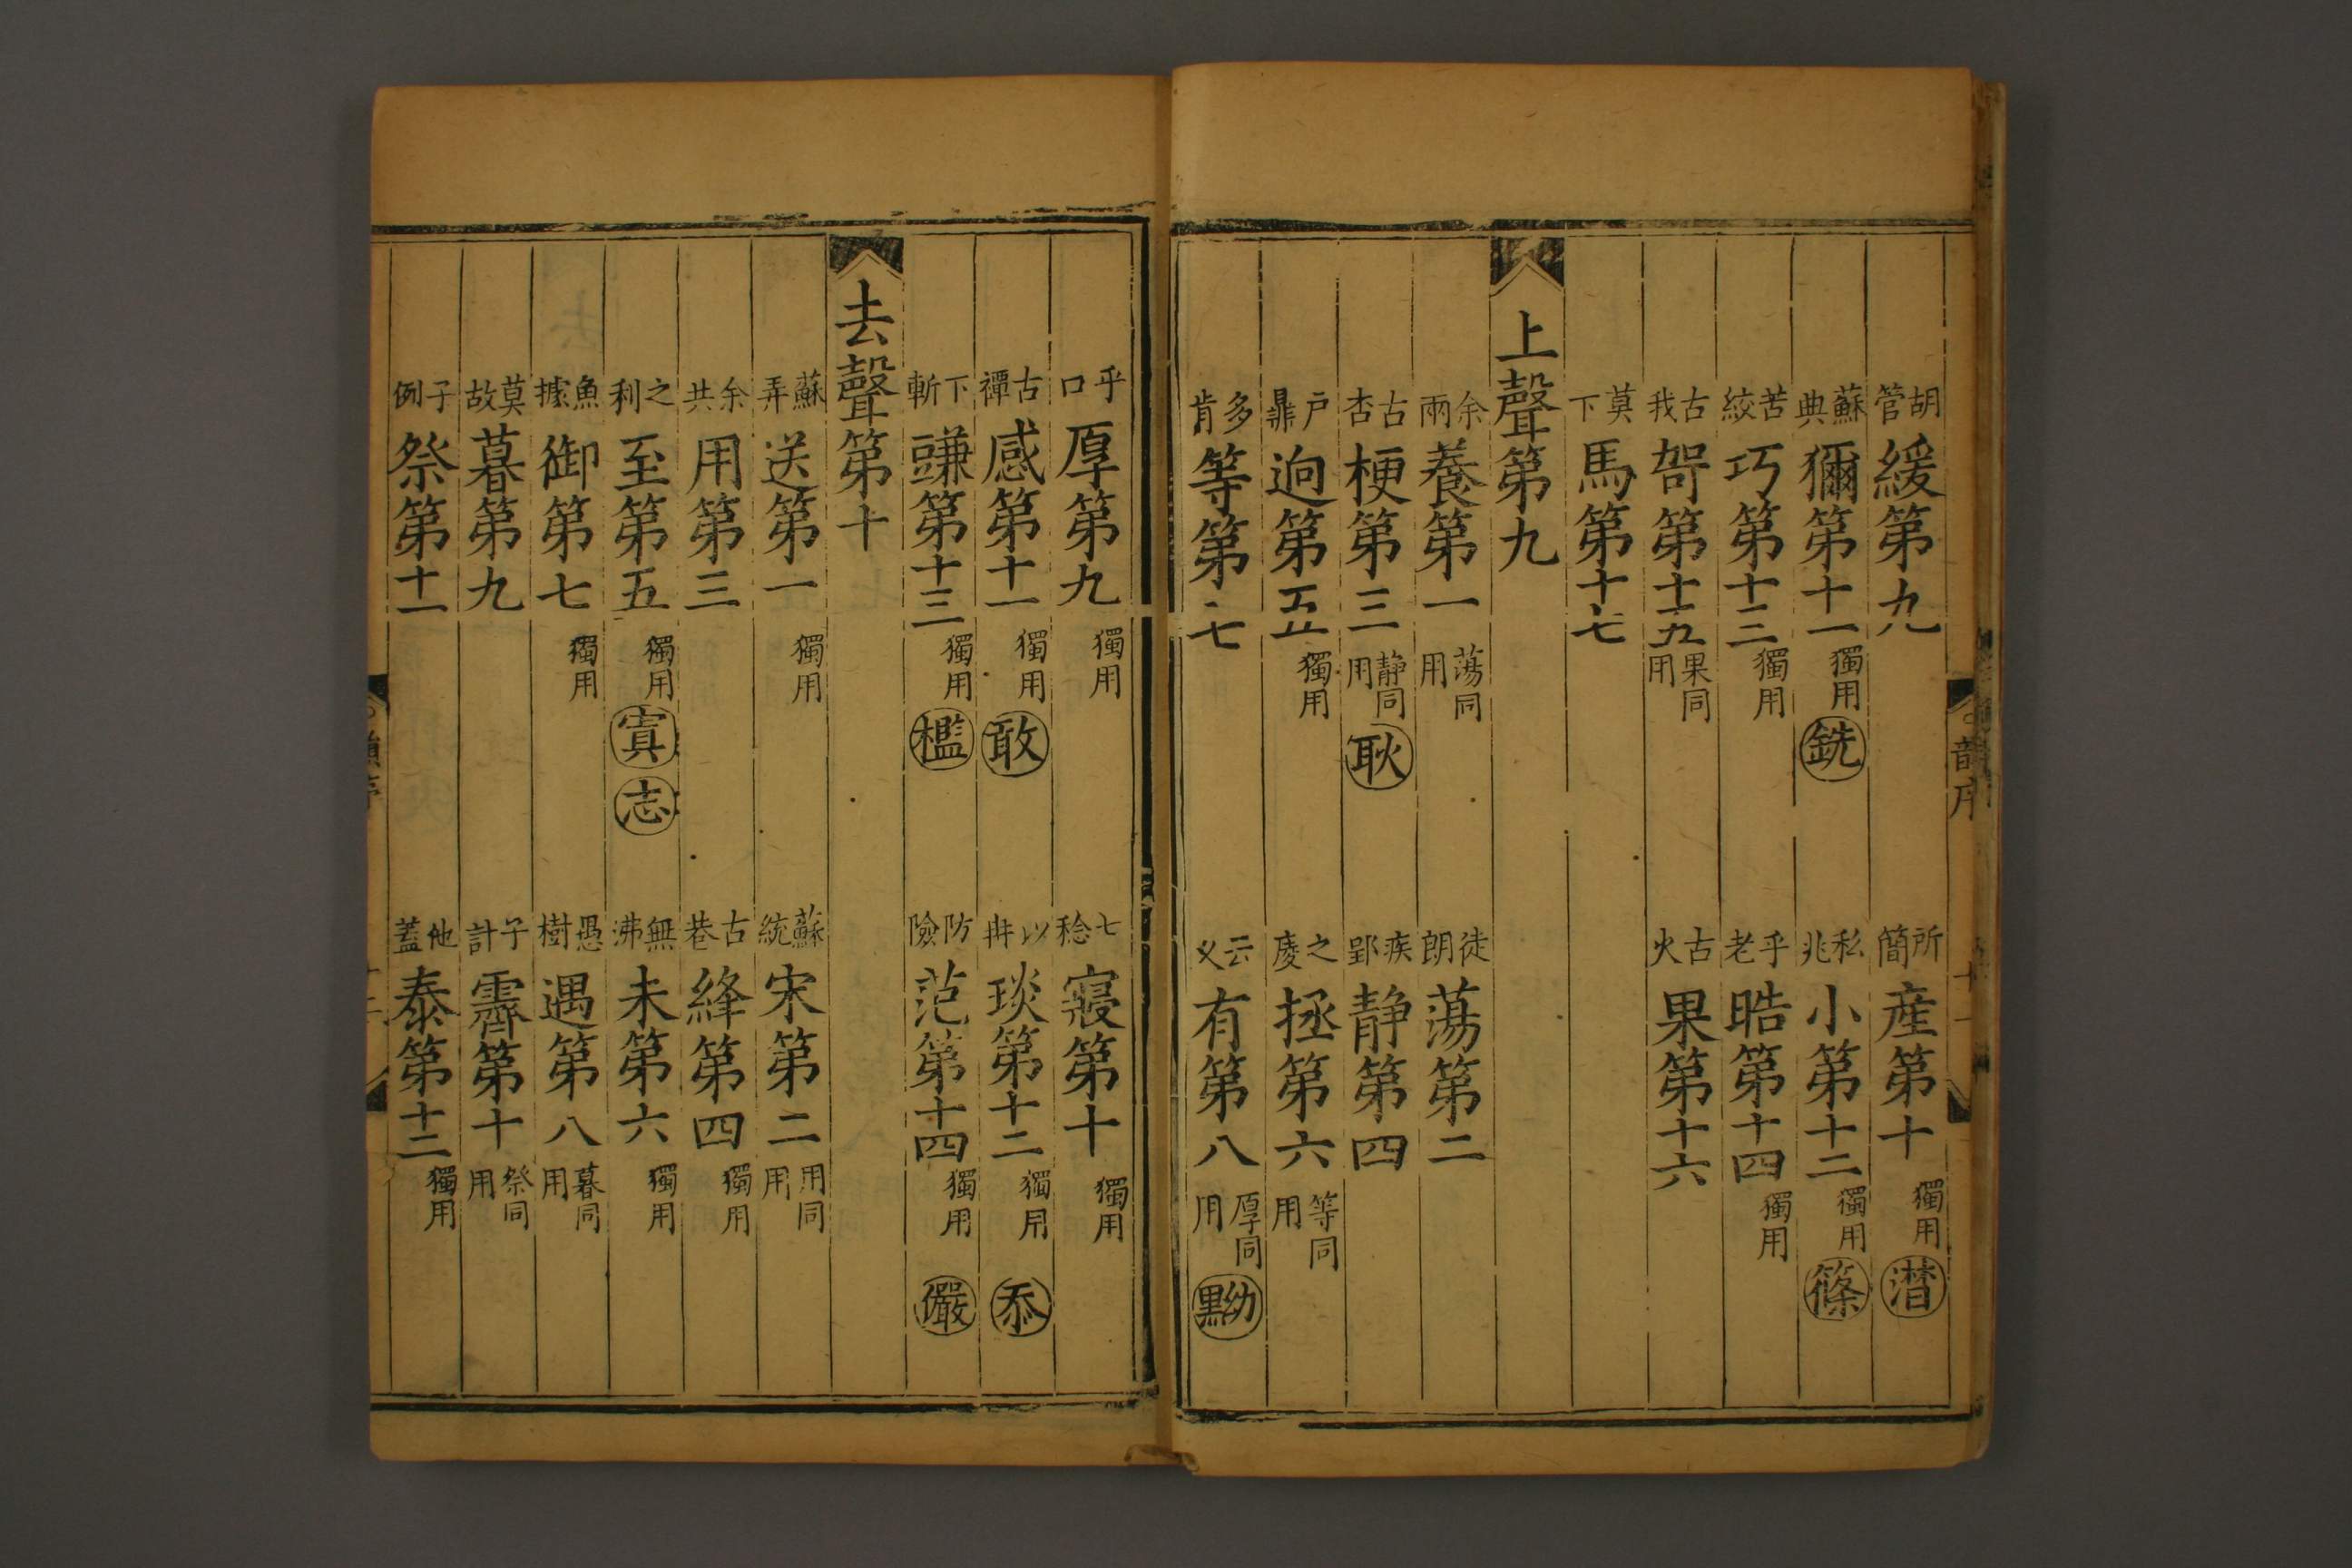 胡管緩第九　所簡産第十獨用潸
蘇典獮第十一獨用銑　私兆小第十二獨用篠
苦絞巧第十三獨用　乎老晧第十四獨用
古我哿第十五果同用　古火果第十六
莫下馬第十七
上聲第九
余兩養第一蕩同用　徒朗蕩第二
古杏梗第三静同用耿　疾郢静第四
戸鼎迥第五獨用　之庱拯第六等同用
多肯等第七　云乂有第八厚同用黝
乎口厚第九獨用　七稔寑第十獨用
古禫感第十一獨用敢　以冉琰第十二獨用忝
下斬豏第十三獨用檻　防險范第十四獨用儼
去聲第十
蘇弄送第一獨用　蘇統宋第二用同用
余共用第三　古巷絳第四獨用
之利至第五獨用寘志　無沸未第六獨用
魚據御第七獨用　愚樹遇第八暮同用
莫故暮第九　子計霽第十祭同用
子例祭第十一　他蓋泰第十二獨用